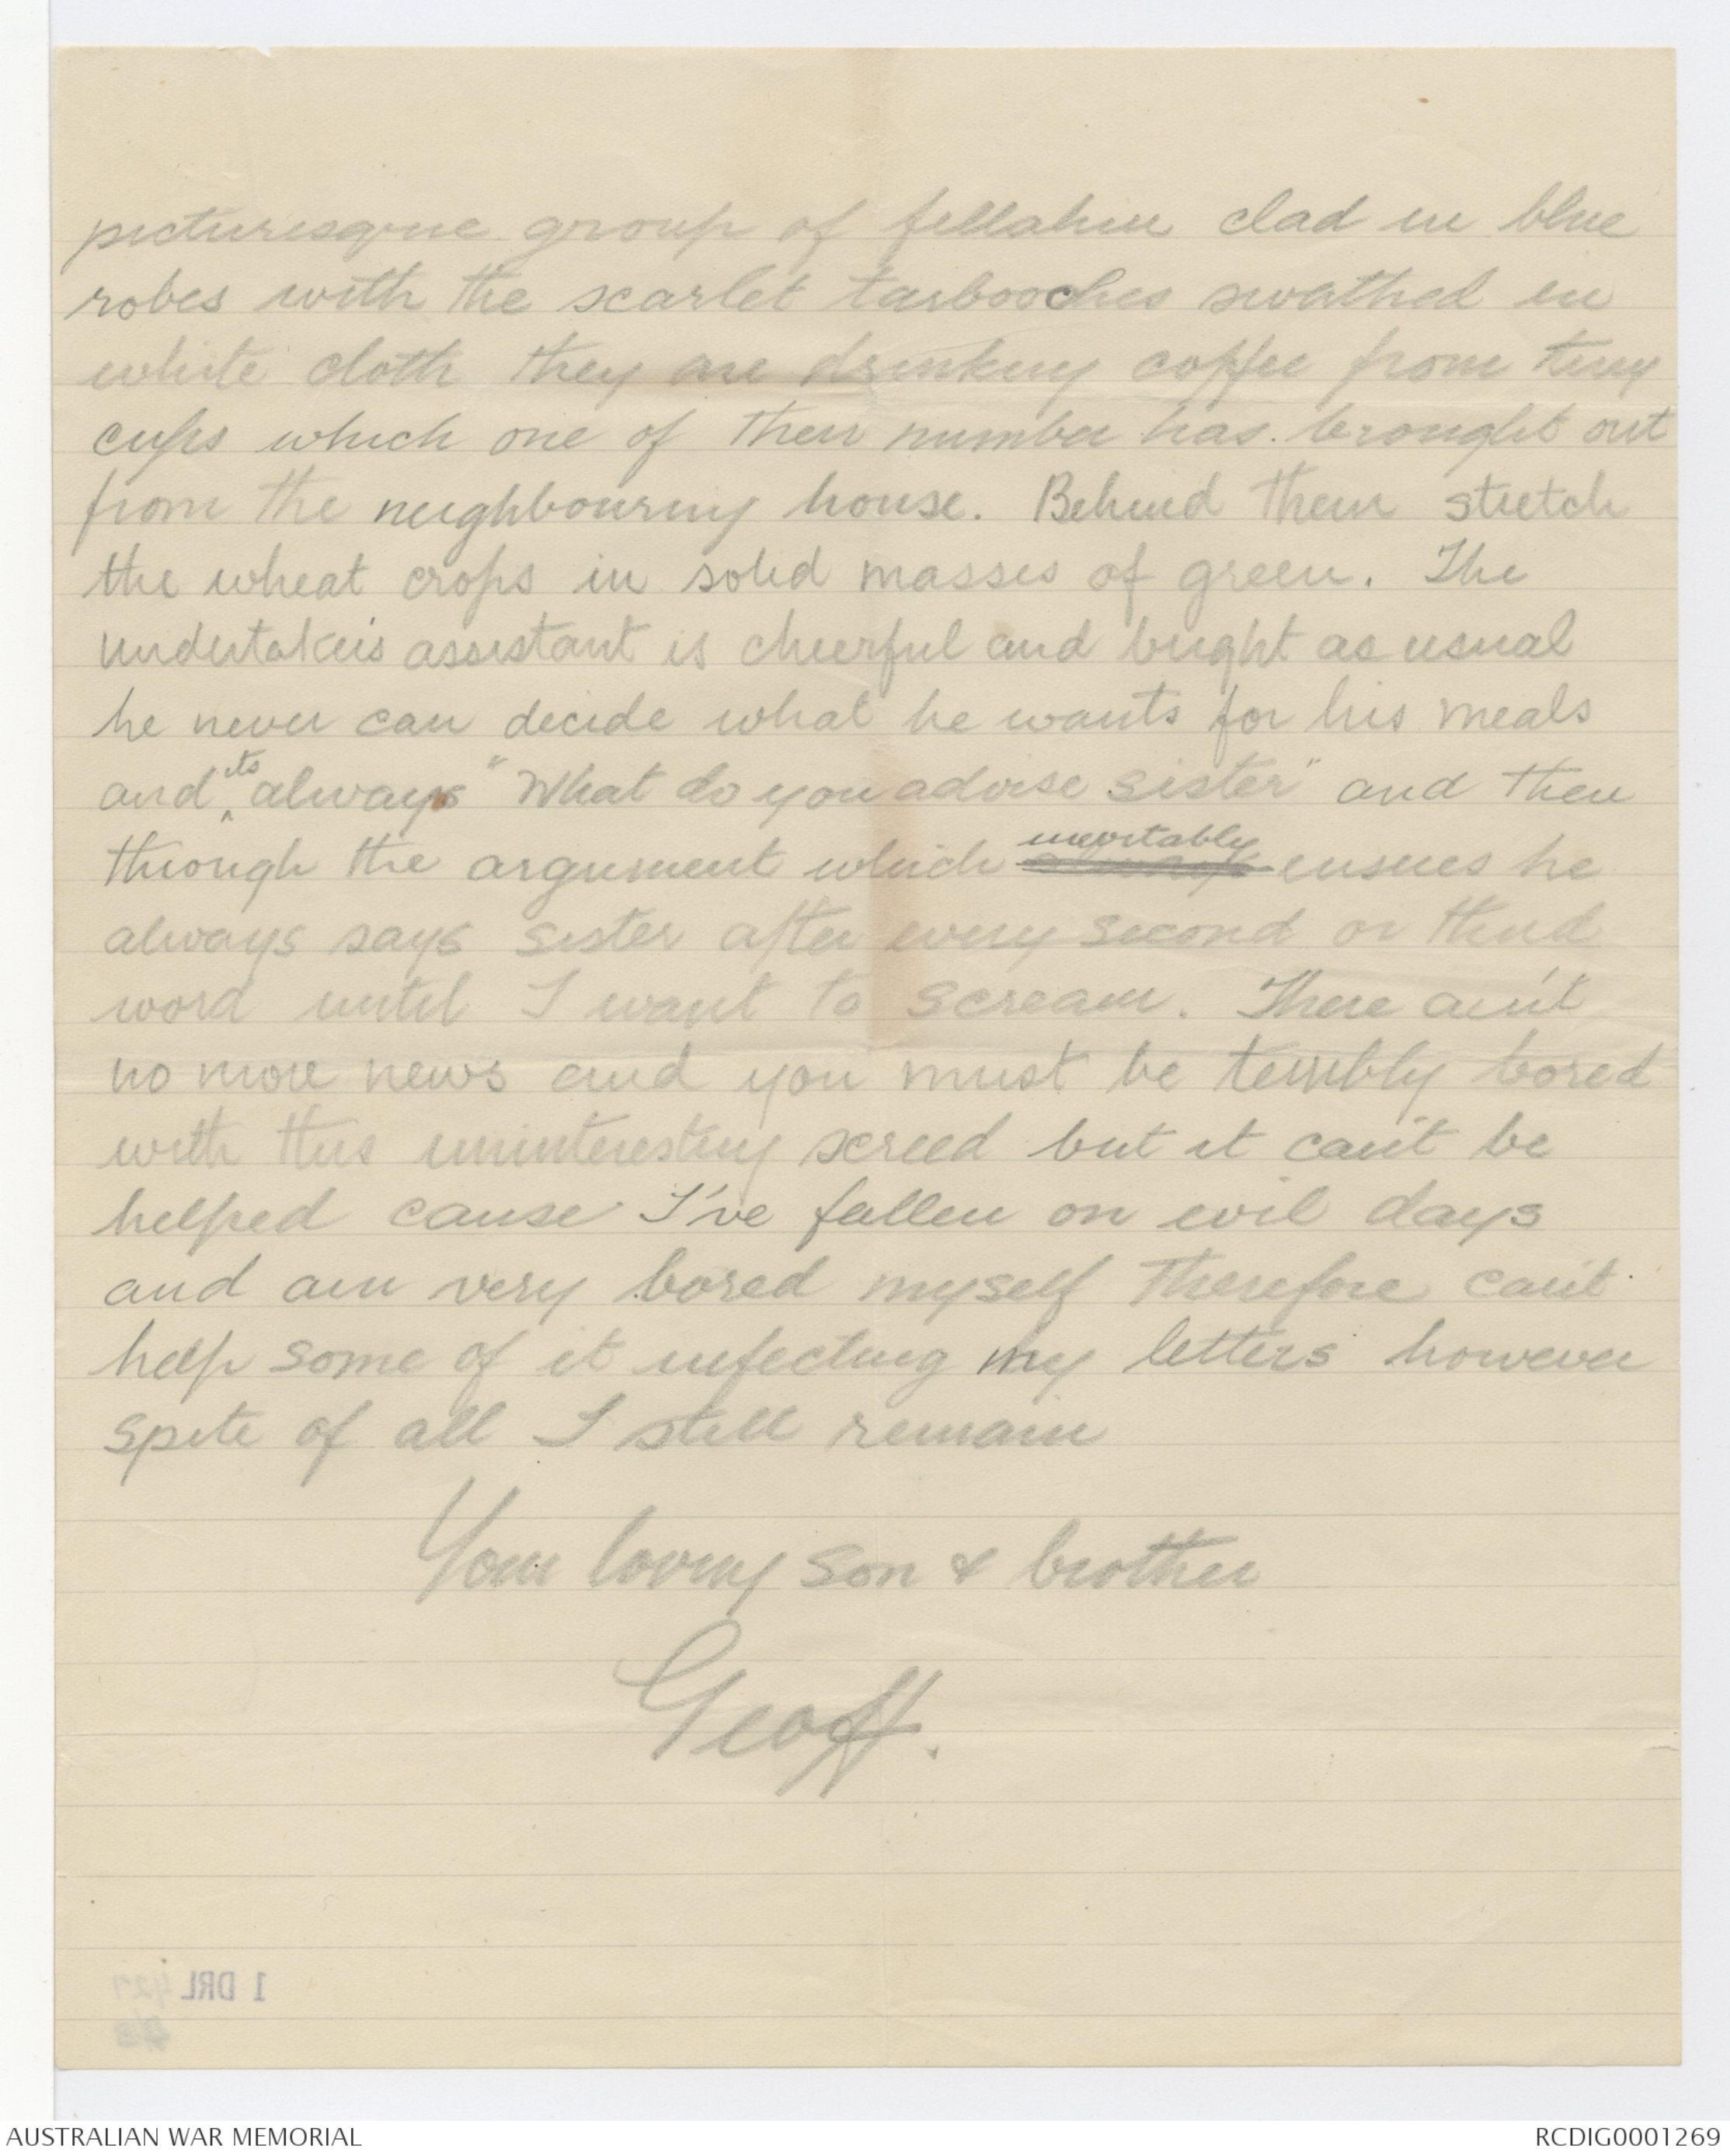 picturesque group of fellahin clad in blue
robes with the scarlet tarbooches swathed in
white cloth they are drinking coffee from tiny
cups which one of their number has brought out
from the neighbouring house. Behind them stretch
the wheat crops in solid masses of green. The
undertaker's assistant is cheerful and bright as usual
he never can decide what he wants for his meals
and its always "What do you advise sister" and then
through the argument which inevitably ensues he
always says sister after every second or third
word until I want to scream. There ain't
no more news and you must be terribly bored
with this uninteresting screed but it can't be
helped cause I've fallen on evil days
and am very bored myself therefore can't
help some of it infecting my letters however
spite of all I still remain
Your loving son & brother
Geoff.
1 DRL
AUSTRALIAN WAR MEMORIAL
RCDIG0001269